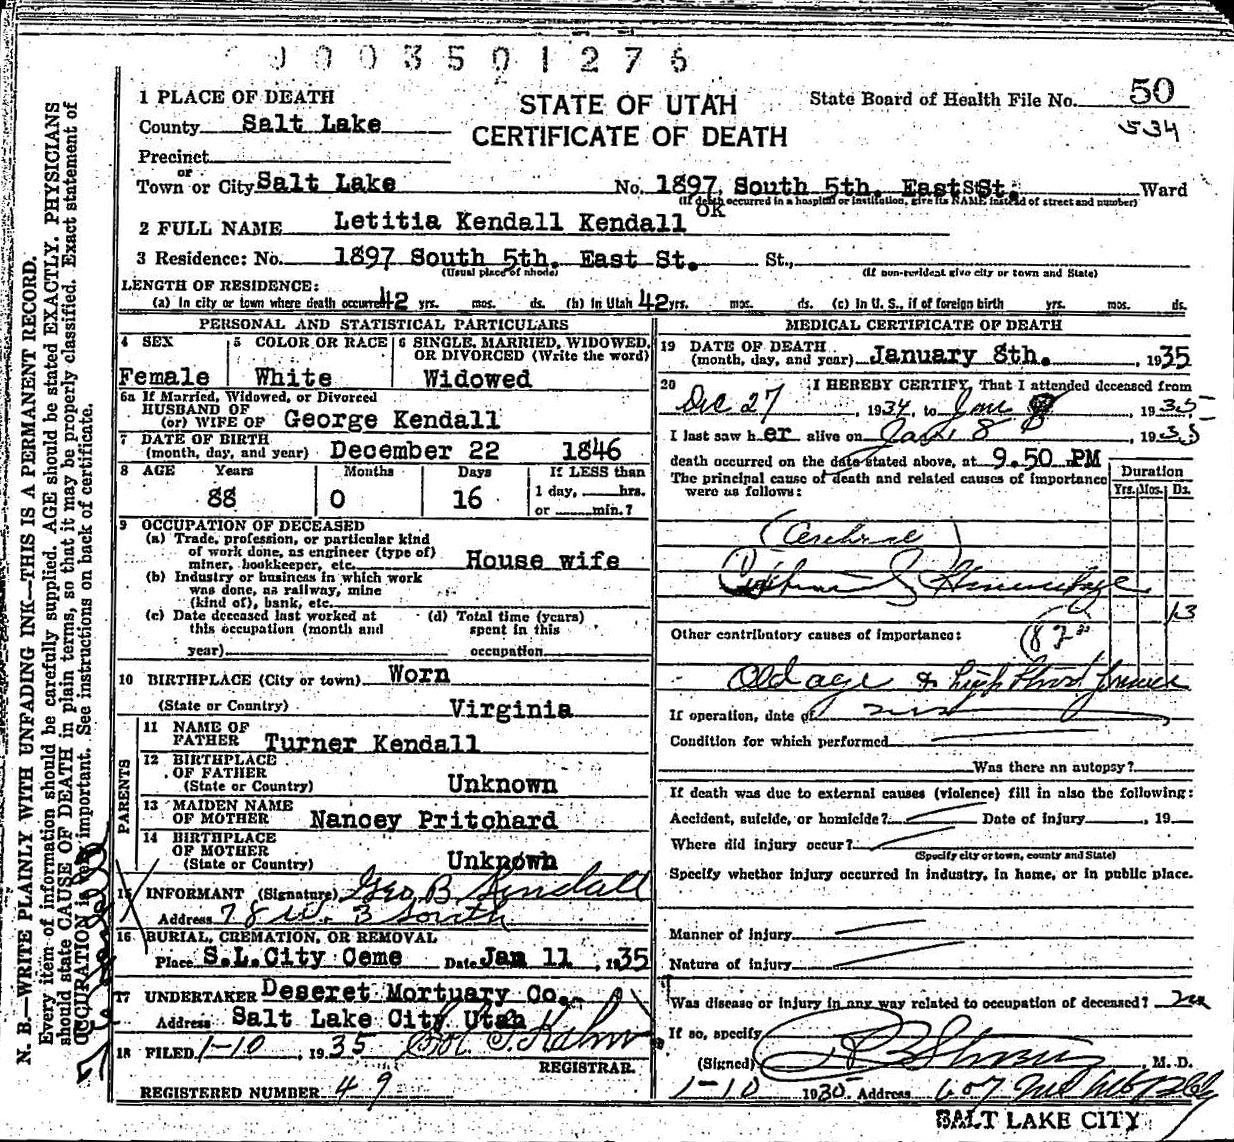 0003501276
1 PLACE OF DEATH
STATE OF UTAH
CERTIFICATE OF DEATH
State Board of Health File No. 50
534
County Salt Lake
Precinct
or
Town or City Salt Lake No. 1897 South 5th. East St. St. Ward
(If death occurred in a hospital or institution, give its NAME instead of street and number)
OK
2 FULL NAME Letitia Kendall Kendall
3 Residence: No. 1897 South 5th. East St. St.,
(Usual place of abode) (If non-resident give city or town and State)
LENGTH OF RESIDENCE:
(a) In city or town where death occurred 42 yrs. mos. ds. (b) In Utah 42 yrs. mos. ds. (c) In U. S., if of foreign birth yrs. mos. ds.
PERSONAL AND STATISTICAL PARTICULARS
4 SEX
Female
5 COLOR OR RACE
White
6 SINGLE, MARRIED, WIDOWED, OR DIVORCED (Write the word)
Widowed
6a If Married, Widowed, or Divorced
HUSBAND OF
(or) WIFE OF George Kendall
7 DATE OF BIRTH
(month, day, and year) December 22 1846
8 AGE Years Months Days If LESS than
88 0 16 1 day, hrs.
or min.?
9 OCCUPATION OF DECEASED
(a) Trade, profession, or particular kind
of work done, as engineer (type of)
miner, bookkeeper, etc. House wife
(b) Industry or business in which work
was done, as railway, mine
(kind of), bank, etc.
(c) Date deceased last worked at
this occupation (month and
year)
(d) Total time (years)
spent in this
occupation
10 BIRTHPLACE (City or town) Worn
(State or Country) Virginia
PARENTS
11 NAME OF
FATHER Turner Kendall
12 BIRTHPLACE
OF FATHER
(State or Country) Unknown
13 MAIDEN NAME
OF MOTHER Nancey Pritchard
14 BIRTHPLACE
OF MOTHER
(State or Country) Unknown
15 INFORMANT (Signature) Geo B Kendall
Address 78 W. 3 South
16 BURIAL, CREMATION, OR REMOVAL
Place S.L.City Ceme Date Jan 11, 1935
17 UNDERTAKER Deseret Mortuary Co.
Address Salt Lake City Utah
18 FILED 1-10, 1935
REGISTRAR.
REGISTERED NUMBER 49
MEDICAL CERTIFICATE OF DEATH
19 DATE OF DEATH
(month, day, and year) January 8th., 1935
20 I HEREBY CERTIFY, That I attended deceased from
Dec 27, 1934, to Jan 8, 1935
I last saw her alive on Jan 8, 1935
death occurred on the date stated above, at 9.50 PM
The principal cause of death and related causes of importance
were as follows:
Duration
Yrs. Mos. Ds.
(Cerebral)
Hemorrhage
13
Other contributory causes of importance:
Old age & high blood pressure
If operation, date of
Condition for which performed
Was there an autopsy?
If death was due to external causes (violence) fill in also the following:
Accident, suicide, or homicide? Date of injury , 19
Where did injury occur?
(Specify city or town, county and State)
Specify whether injury occurred in industry, in home, or in public place.
Manner of injury
Nature of injury
Was disease or injury in any way related to occupation of deceased? no
If so, specify
(Signed) M. D.
1-10 1930 Address 607
SALT LAKE CITY
N. B.—WRITE PLAINLY WITH UNFADING INK—THIS IS A PERMANENT RECORD.
Every item of information should be carefully supplied. AGE should be stated EXACTLY. PHYSICIANS
should state CAUSE OF DEATH in plain terms, so that it may be properly classified. Exact statement of
OCCUPATION is very important. See instructions on back of certificate.